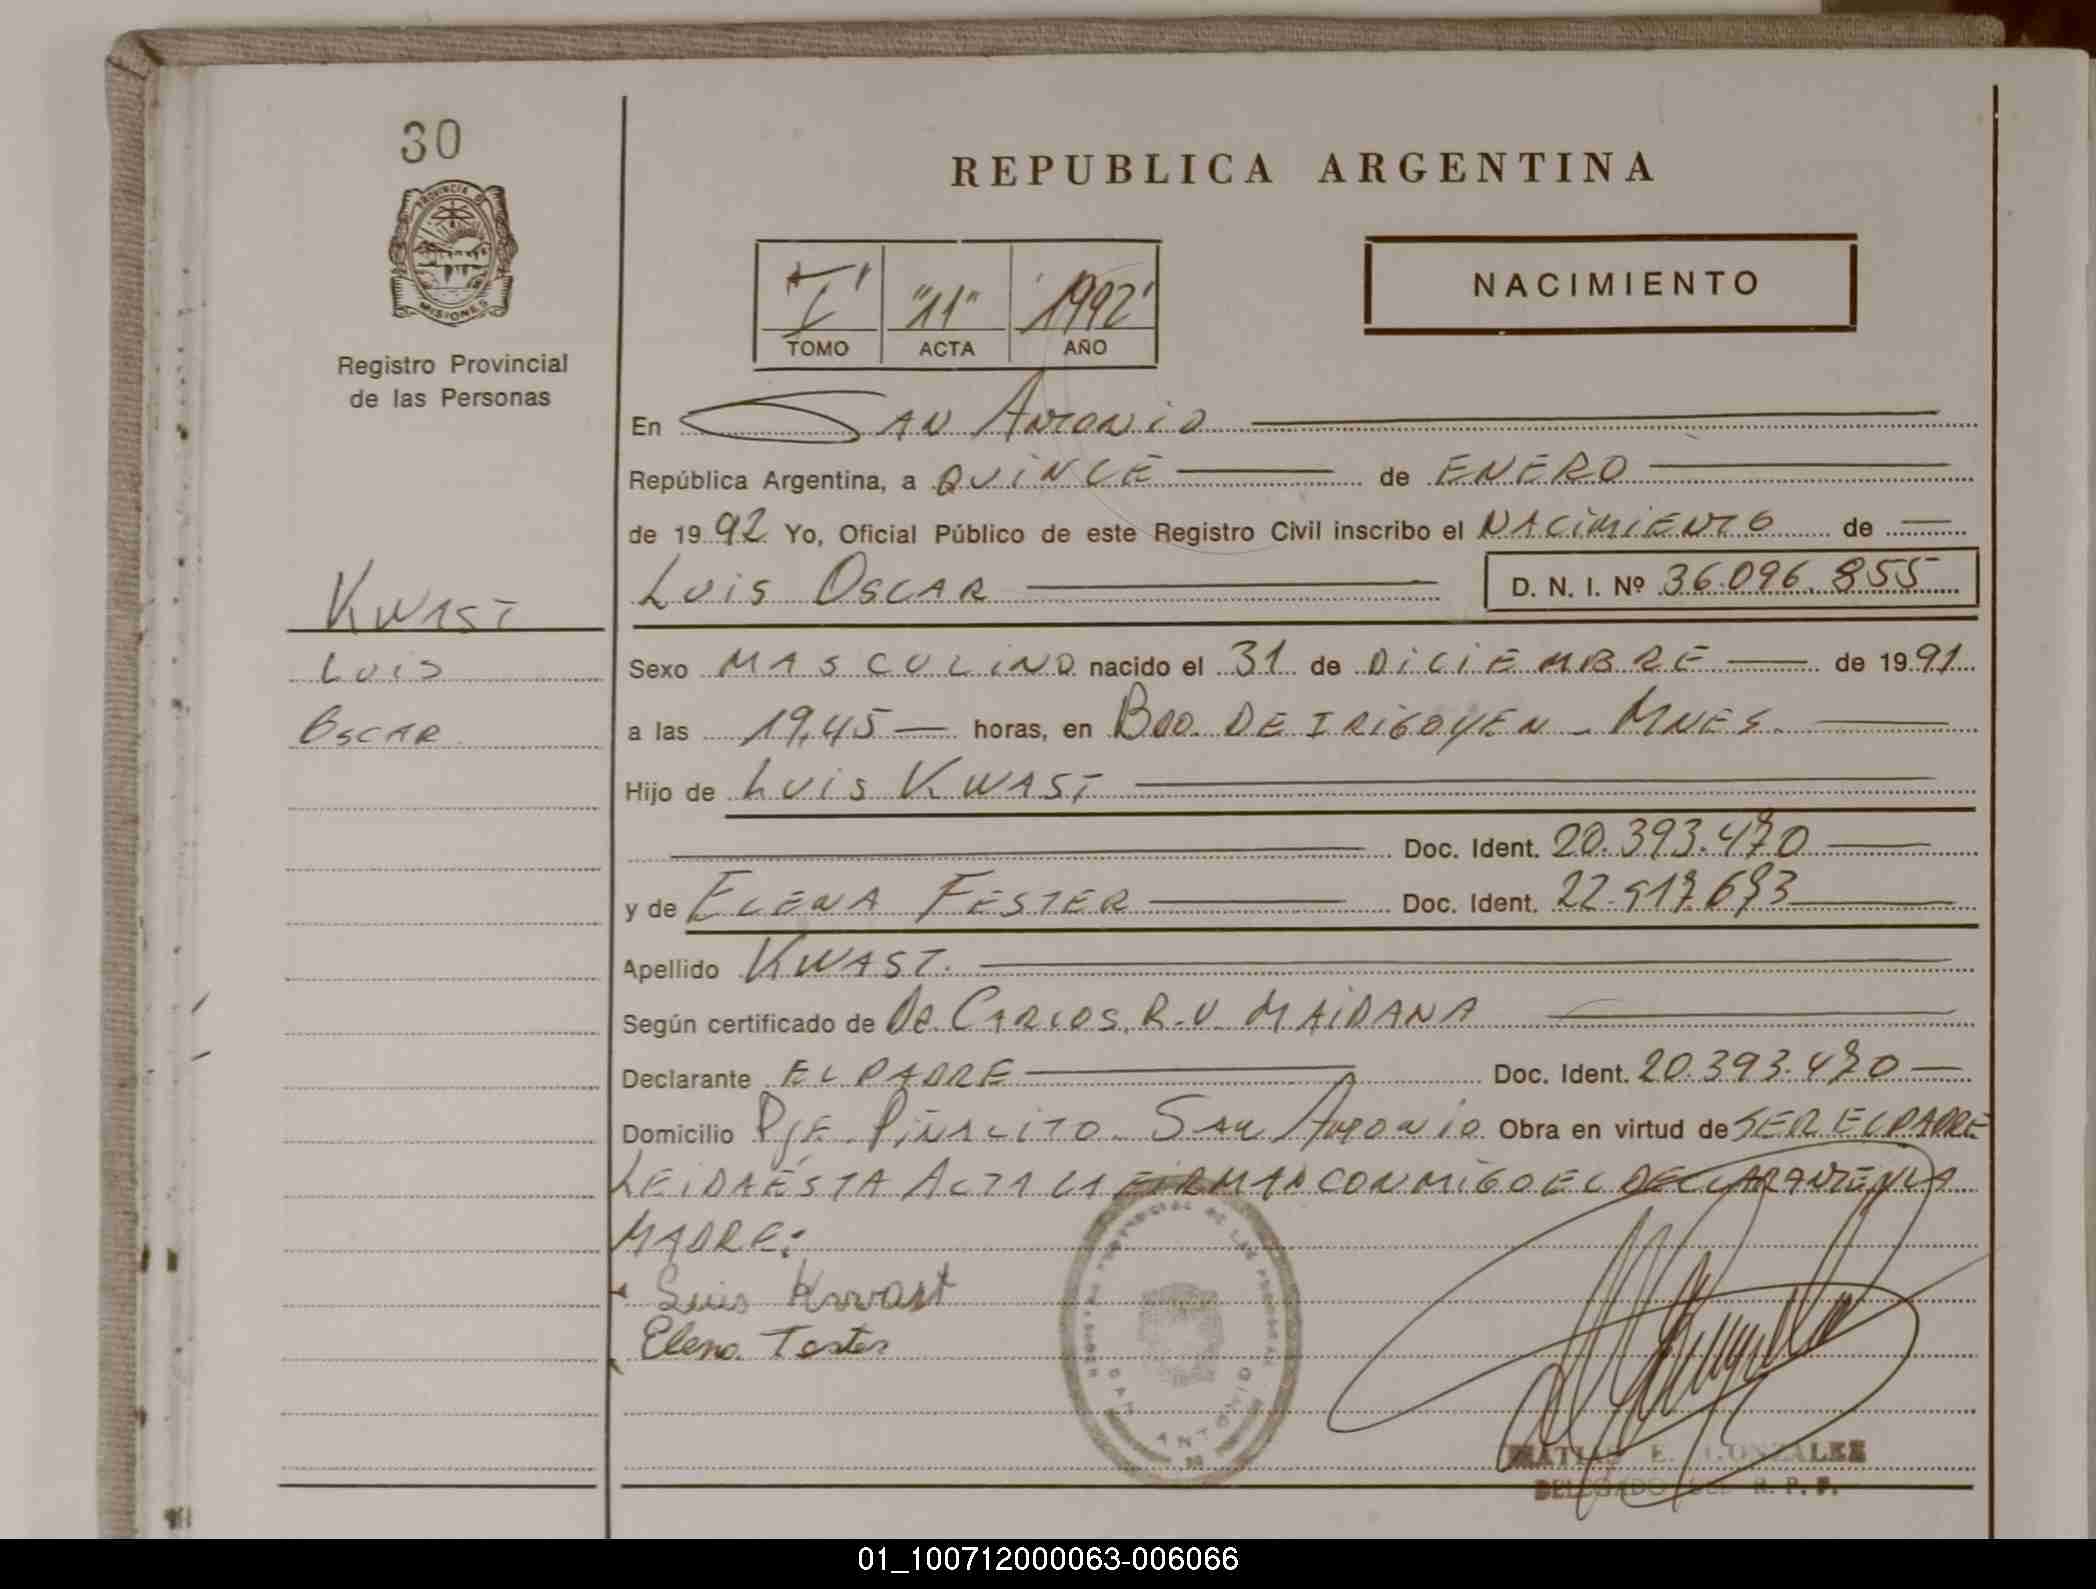 30
PROVINCIA DE
MISIONES
Registro Provincial
de las Personas
KWAST
LUIS
OSCAR
REPUBLICA ARGENTINA
"I" "11" "1992"
TOMO ACTA AÑO
NACIMIENTO
En SAN ANTONIO
República Argentina, a QUINCE de ENERO
de 1992 Yo, Oficial Público de este Registro Civil inscribo el NACIMIENTO de
LUIS OSCAR D. N. I. Nº 36.096.855
Sexo MASCULINO nacido el 31 de DICIEMBRE de 1991
a las 19,45 horas, en BDO. DE IRIGOYEN - MNES.
Hijo de LUIS KWAST
Doc. Ident. 20.393.470
y de ELENA FESTER Doc. Ident. 22.917.673
Apellido KWAST.
Según certificado de DR. CARLOS. R.V. MAIDANA
Declarante EL PADRE Doc. Ident. 20.393.470
Domicilio PJE. PIÑALITO. SAN ANTONIO Obra en virtud de SER EL PADRE
LEIDA ESTA ACTA LA FIRMAN CONMIGO EL DECLARANTE Y LA
MADRE:
Luis Kwast
Elena Tester
REGISTRO PROVINCIAL DE LAS PERSONAS
SAN ANTONIO
MATIAS E. GONZALEZ
DELEGADO DEL R. P. P.
01_100712000063-006066